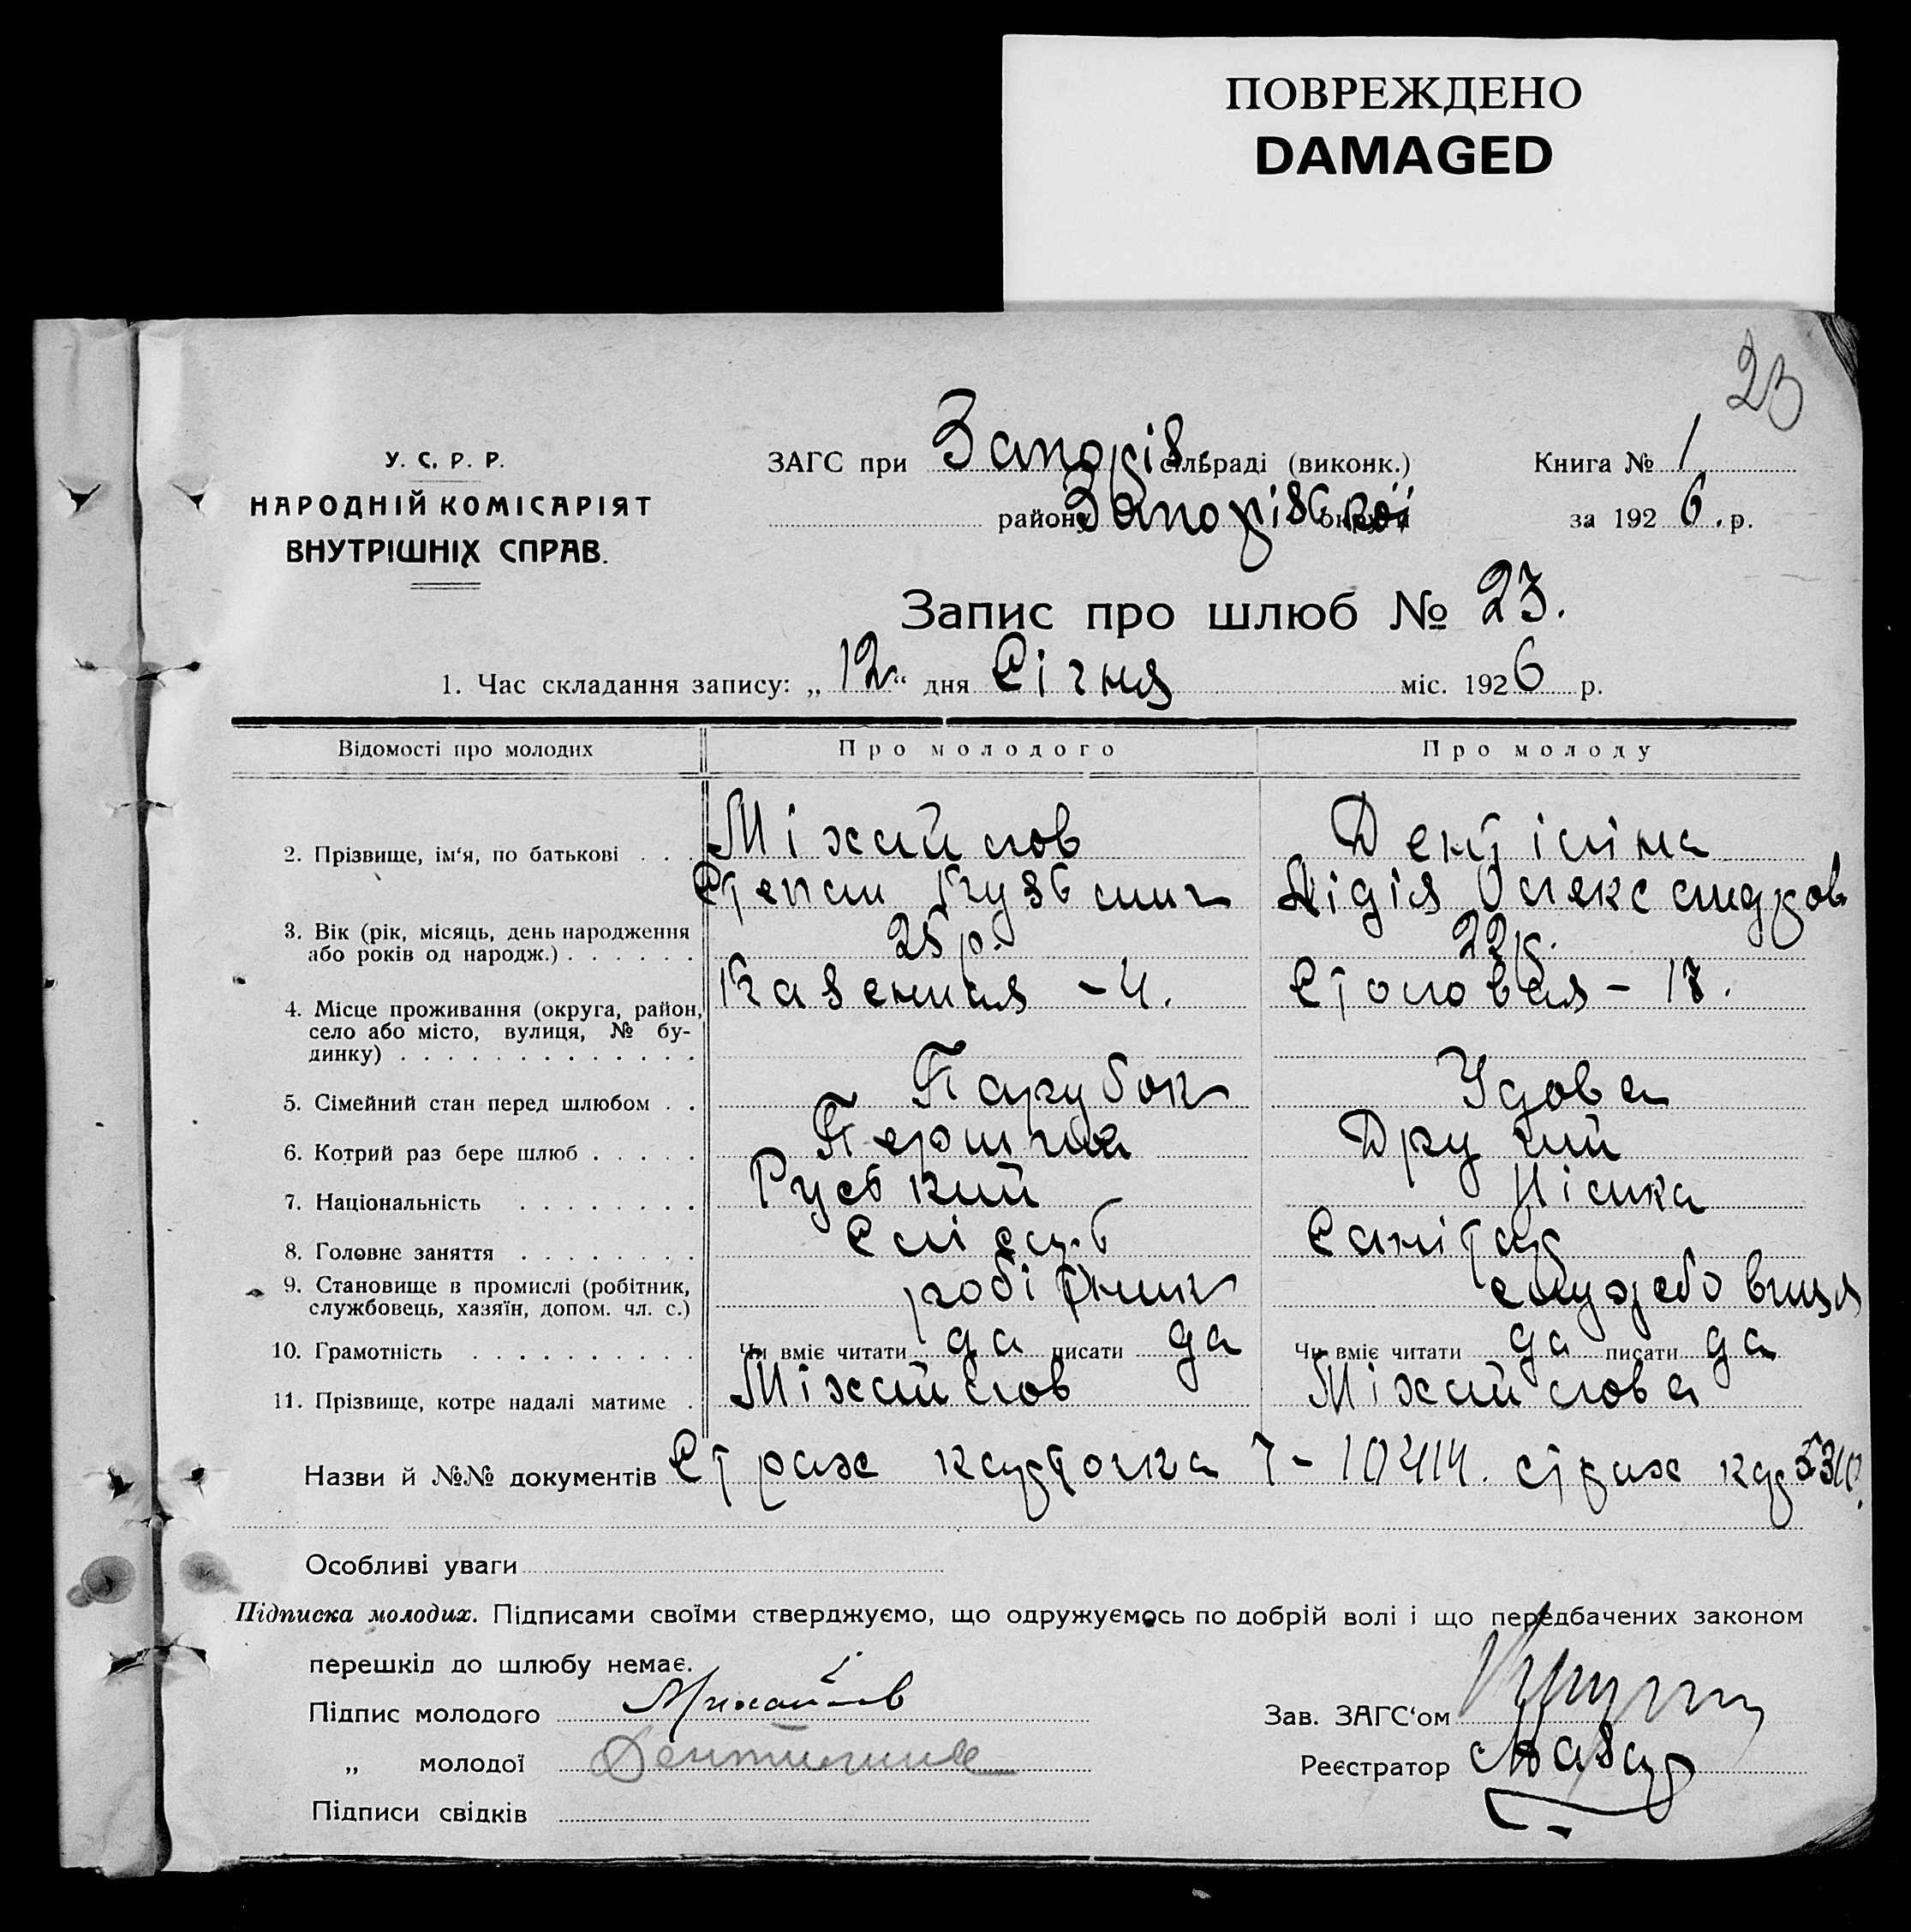 ПОВРЕЖДЕНО
DAMAGED
23
У. С. Р. Р.
НАРОДНІЙ КОМІСАРІЯТ
ВНУТРІШНІХ СПРАВ.
ЗАГС при Запорів. сільраді (виконк.)
Книга № 1
району Запорівської округи
за 1926. р.
Запис про шлюб № 23.
1. Час складання запису: „12“ дня Січня міс. 1926 р.
Відомості про молодих Про молодого Про молоду
2. Прізвище, ім‘я, по батькові . . . Міхайлов Дентіліна
Степан Кузьмич Лідія Олександров
3. Вік (рік, місяць, день народження 25 р. 22 р.
або років од народж.) . . . . . .
4. Місце проживання (округа, район, Казенная - 4. Столовая - 17.
село або місто, вулиця, № бу-
динку) . . . . . . . . . . . . .
5. Сімейний стан перед шлюбом . . Парубок Удова
6. Котрий раз бере шлюб . . . . . Перший Другий
7. Національність . . . . . . . . Руський Німка
8. Головне заняття . . . . . . . . Слісарь Санітар
9. Становище в промислі (робітник, робітник службовиця
службовець, хазяїн, допом. чл. с.)
10. Грамотність . . . . . . . . . . Чи вміє читати да писати да Чи вміє читати да писати да
11. Прізвище, котре надалі матиме . Міхайлов Міхайлова
Назви й №№ документів Страх карточка 7-10414. страх кар
Особливі уваги
Підписка молодих. Підписами своїми стверджуємо, що одружуємось по добрій волі і що передбачених законом
перешкід до шлюбу немає.
Підпис молодого Михайлов
Зав. ЗАГС‘ом
„ молодої Дентилина
Реєстратор
Підписи свідків